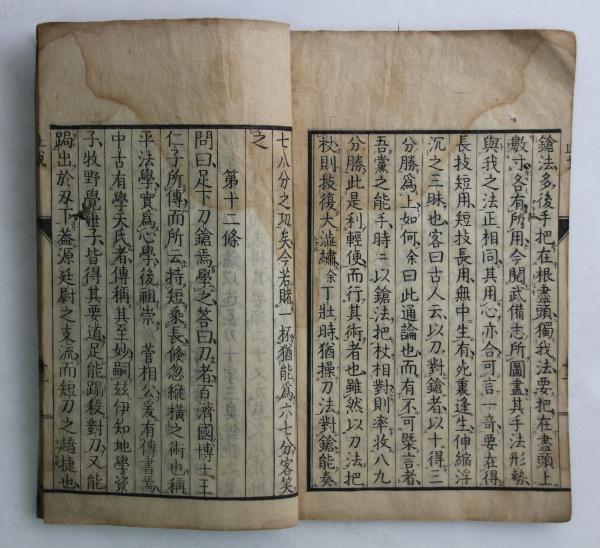 鎗法多後手把在根盡頭獨我法要把在盡頭上
數寸各有所用今閱武備志所圖畫其手法形勢
與我之法正相同其用心亦合可言一奇要在得
長技短用短技長用無中生有死裏逢生伸縮浮
沉之三昧也客曰古人云以刀對鎗者以十得三
分勝爲上如何余曰此通論也而有不可槩言者
吾黨之能手時二以鎗法把杖相對則率收八九
分勝此是利輕便而行其術者也雖然以刀法把
杖則技復大澁縮余丁壯時猶操刀法對鎗能奏
七八分之功矣今若賭一杯猶能爲六七分客笑
之
第十二條
問曰足下刀鎗焉學之答曰刀者百濟國博士王
仁子所傳而所云持短乘長倏忽縱橫之術也稱
平法學實爲心學後祖崇 菅相公爰有傳書焉
中古有學夫氏者傳稱其至妙嗣玆伊知地學資
子牧野學世子皆得其要道足能蹋殺對刀又能
跼出於刃下蓋源廷尉之支流而短刀之趫捷也